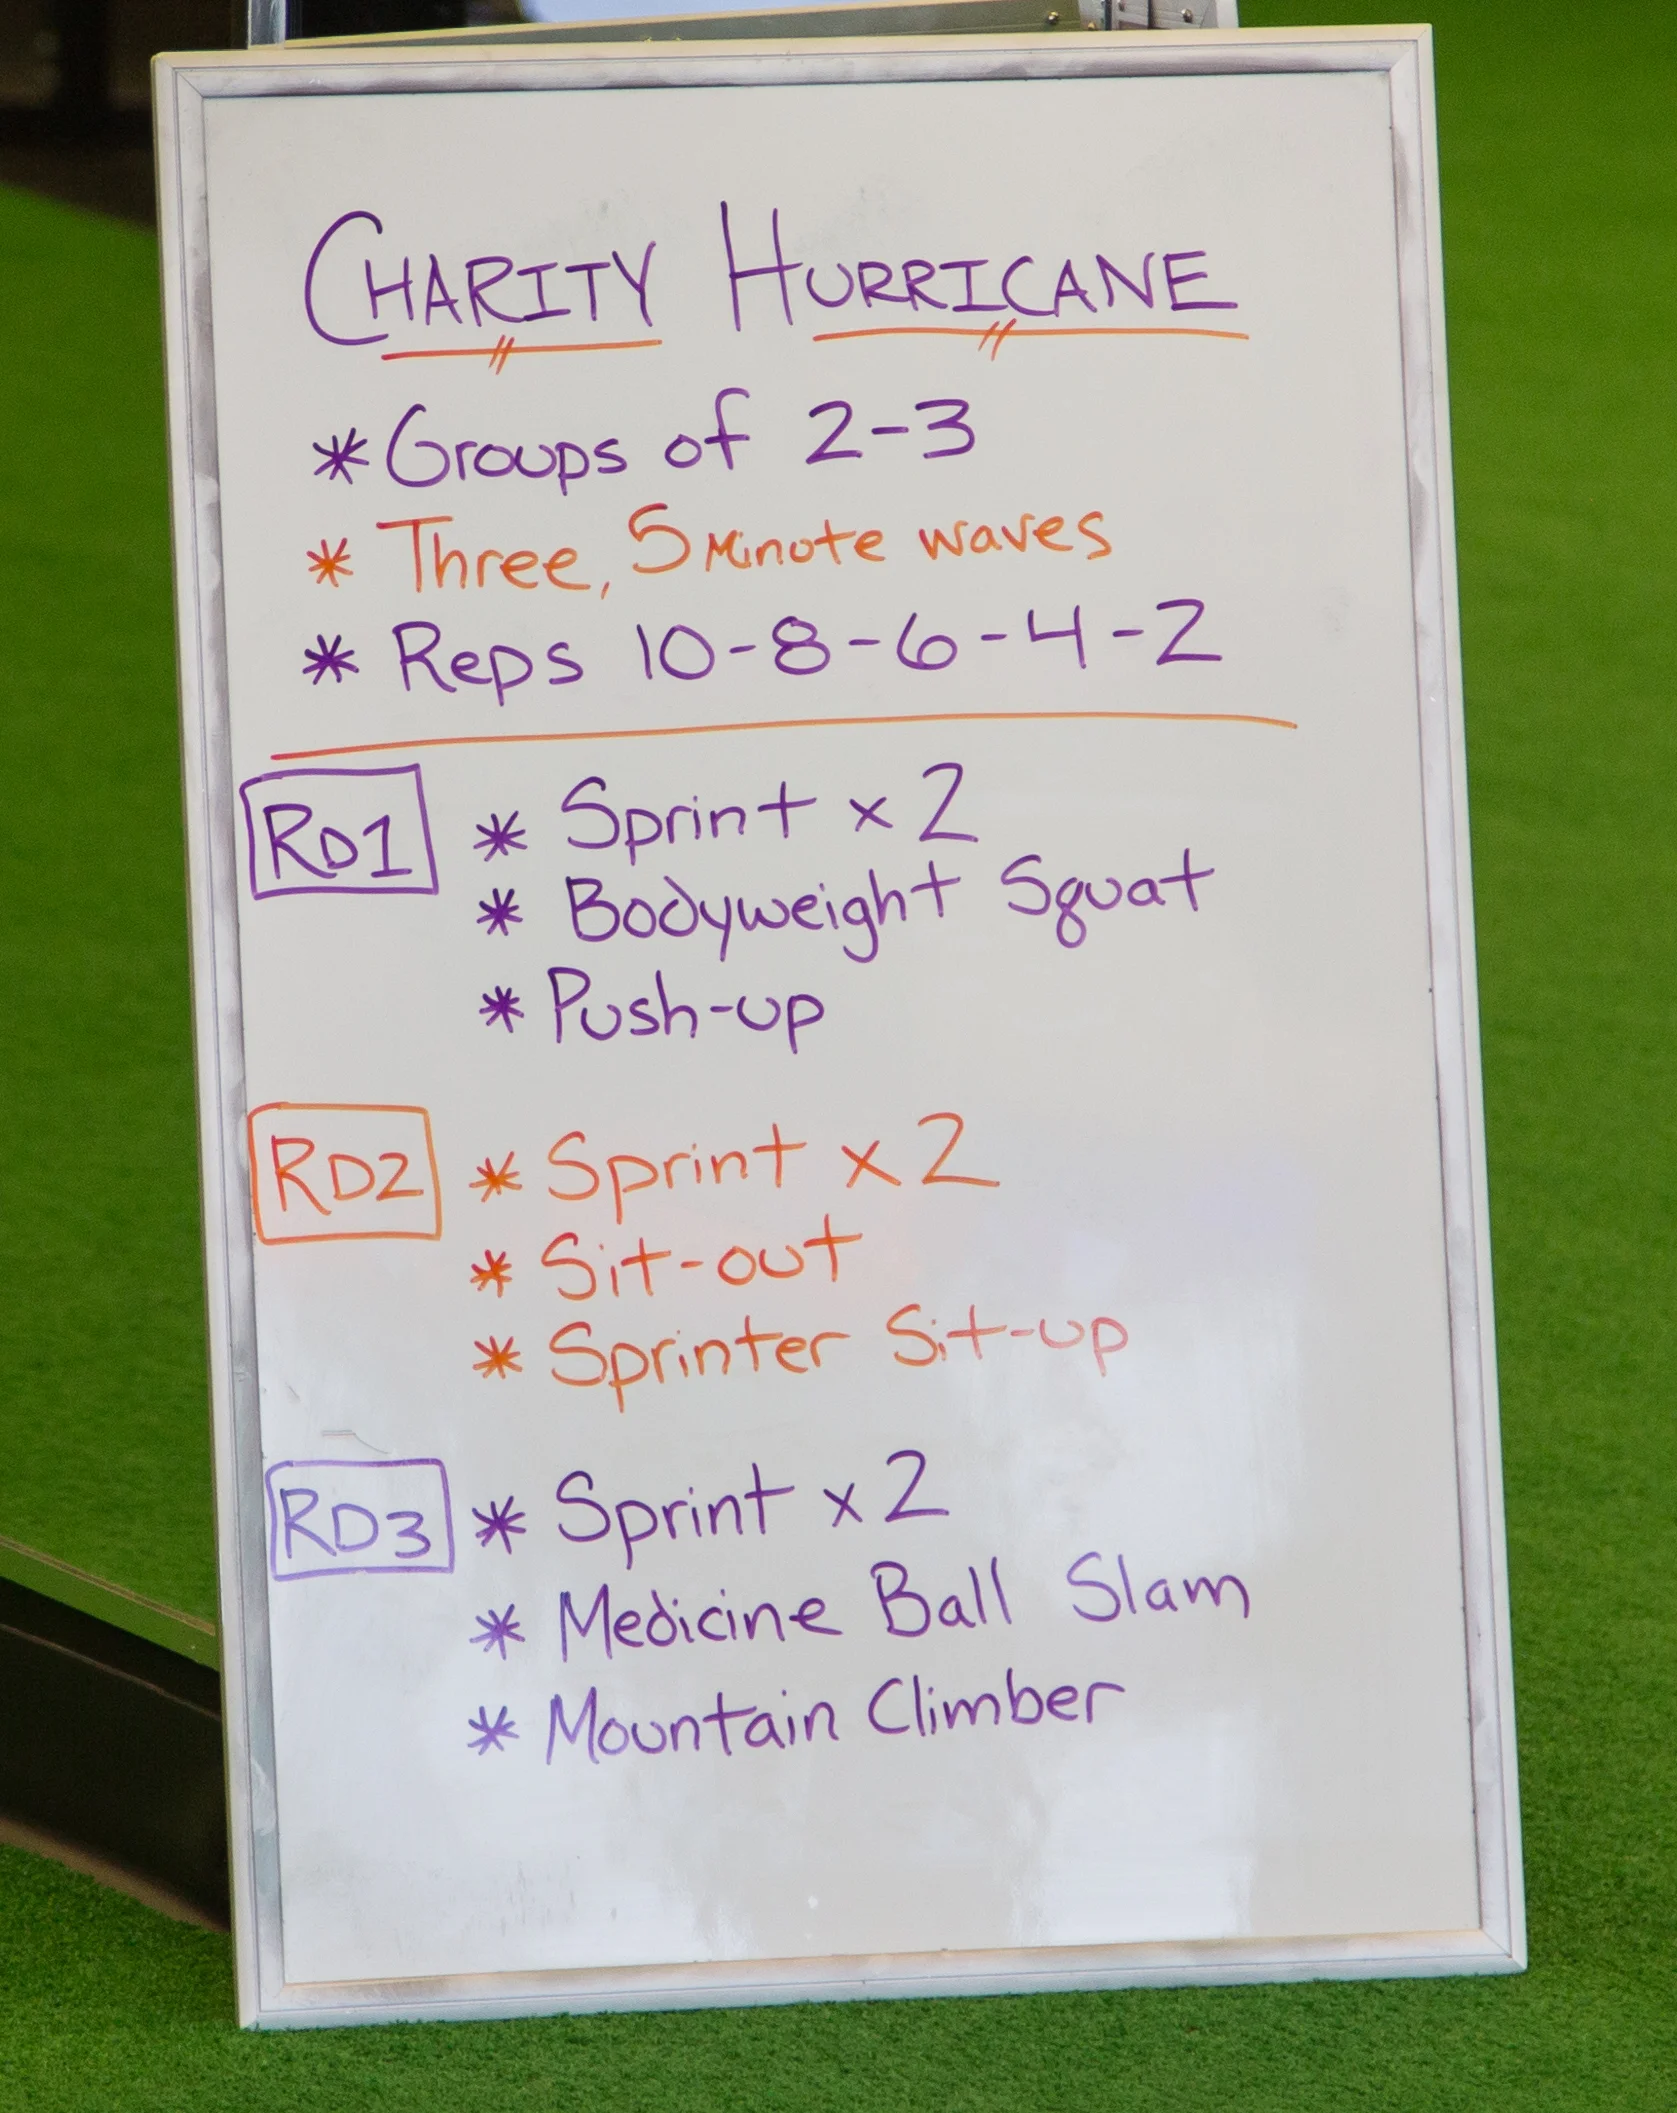 CHARITY HURRICANE
* Groups of 2-3
* Three, 5 Minute waves
* Reps 10-8-6-4-2
RD1 * Sprint x 2
* Bodyweight Squat
* Push-up
RD2 * Sprint x 2
* Sit-out
* Sprinter Sit-up
RD3 * Sprint x 2
* Medicine Ball Slam
* Mountain Climber